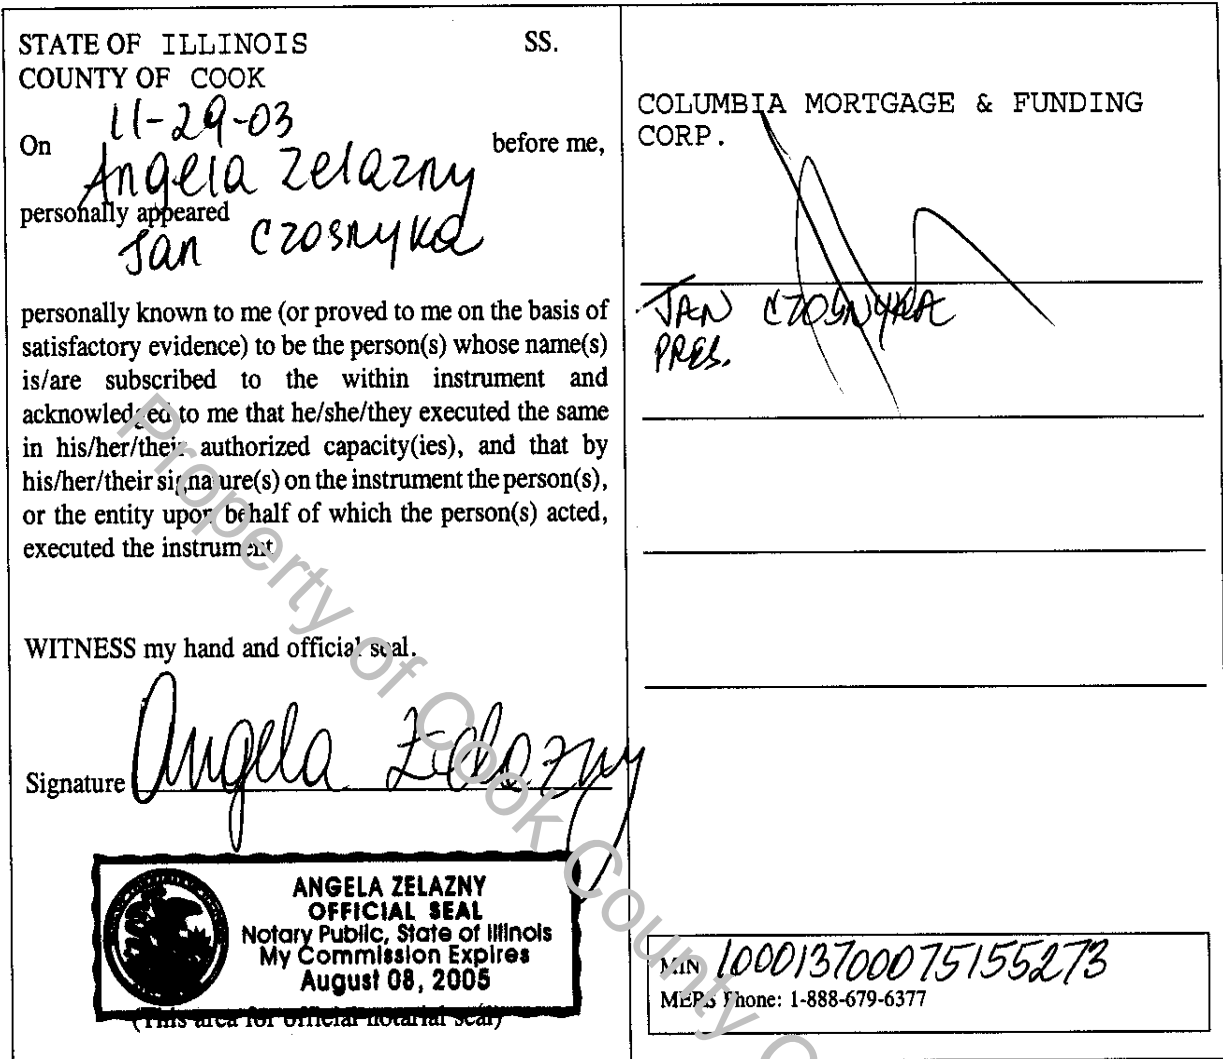 STATE OF ILLINOIS SS.
COUNTY OF COOK
11-29-03
On before me,
Angela Zelazny
personally appeared
Jan Czosnyka
personally known to me (or proved to me on the basis of
satisfactory evidence) to be the person(s) whose name(s)
is/are subscribed to the within instrument and
acknowledged to me that he/she/they executed the same
in his/her/their authorized capacity(ies), and that by
his/her/their signature(s) on the instrument the person(s),
or the entity upon behalf of which the person(s) acted,
executed the instrument
WITNESS my hand and official seal.
Signature Angela Zelazny
ANGELA ZELAZNY
OFFICIAL SEAL
Notary Public, State of Illinois
My Commission Expires
August 08, 2005
(This area for official notarial seal)
COLUMBIA MORTGAGE & FUNDING
CORP.
JAN CZOSNYKA
PRES.
MIN 100013700075155273
MERS Phone: 1-888-679-6377
Property of Cook County